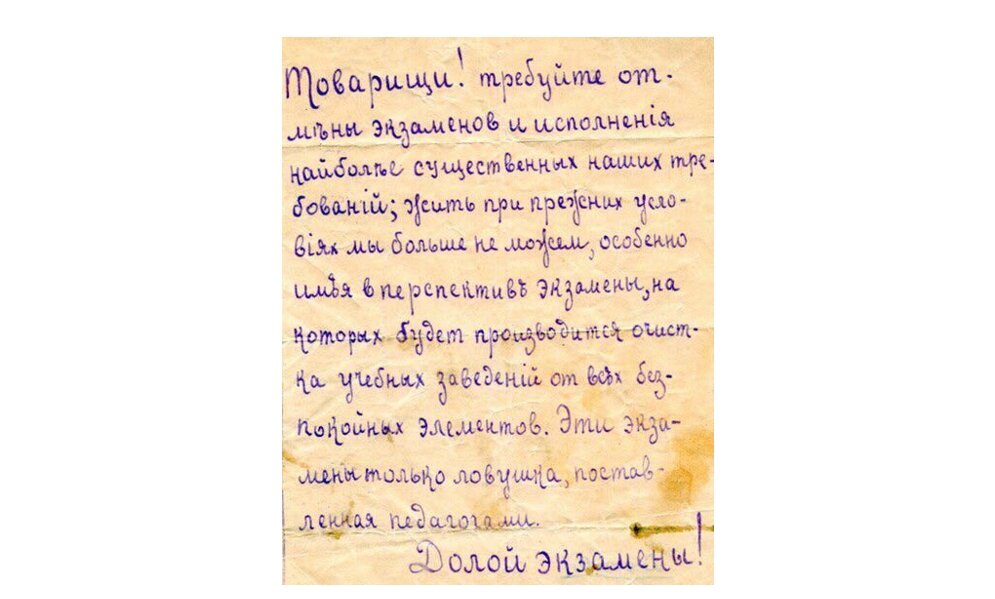 Товарищи! требуйте от-
мѣны экзаменов и исполненія
найболѣе существенных наших тре-
бованій; жить при прежних усло-
віях мы больше не можем, особенно
имѣя в перспективѣ экзамены, на
которых будет производится очист-
ка учебных заведеній от всѣх без-
покойных элементов. Эти экза-
мены только ловушка, постав-
ленная педагогами.
Долой экзамены!